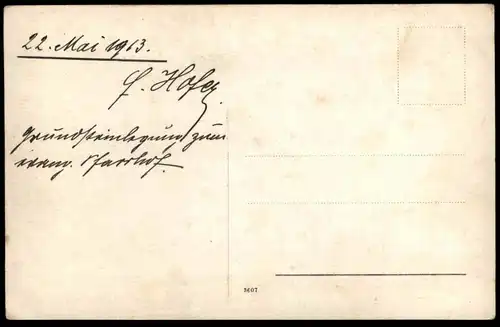 22. Mai 1913.
E. Hofer
Grundsteinlegung zum
evang. Pfarrhof.
3607